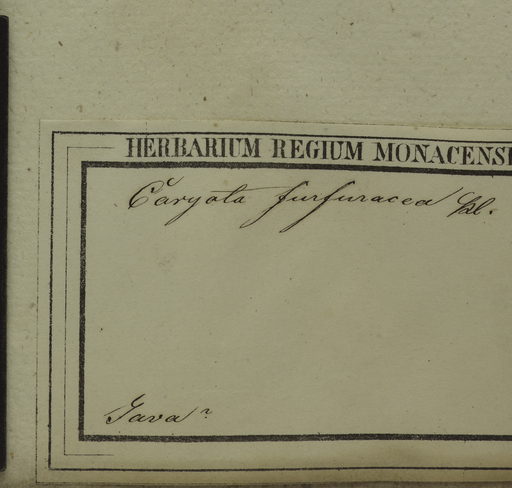 HERBARIUM REGIUM MONACENSE
Caryota furfuracea Bl.
Java